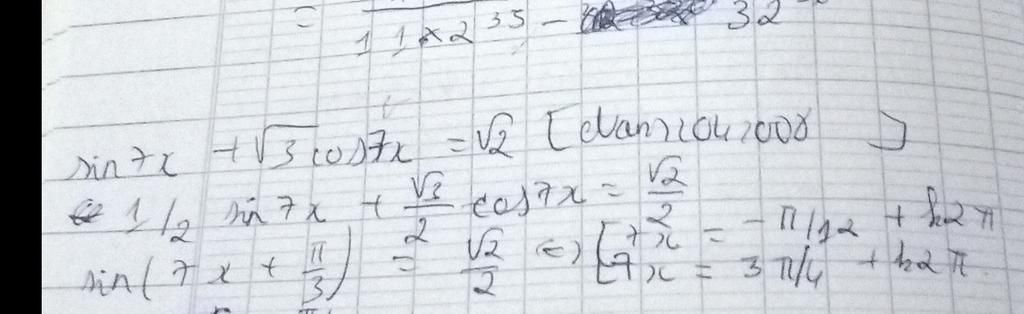 = 11×2^35 - 32
sin 7x + √3 cos 7x = √2 [
1/2 sin 7x + √3/2 cos 7x = √2/2
sin(7x + π/3) = √2/2 <=> [ 7x = -π/12 + k2π
7x = 3π/4 + k2π